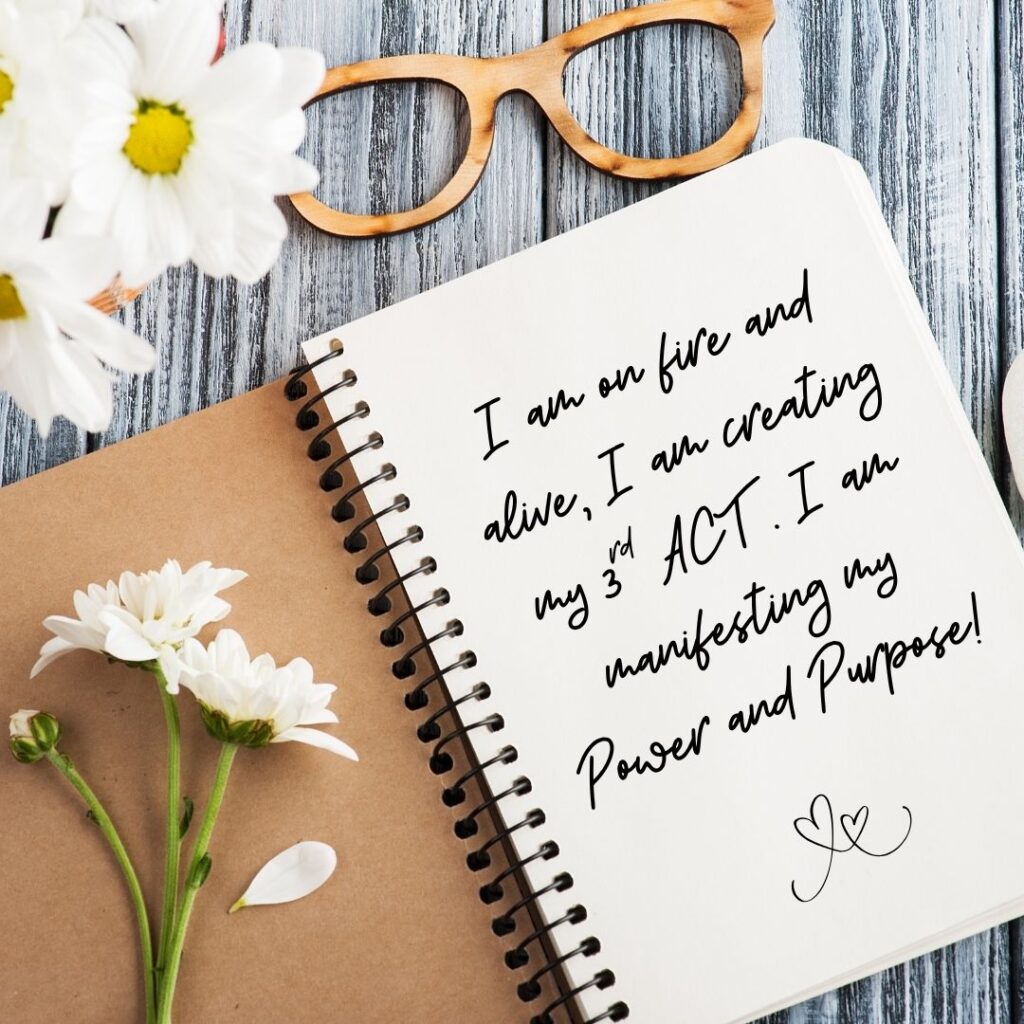 I am on fire and
alive, I am creating
my 3rd ACT. I am
manifesting my
Power and Purpose!